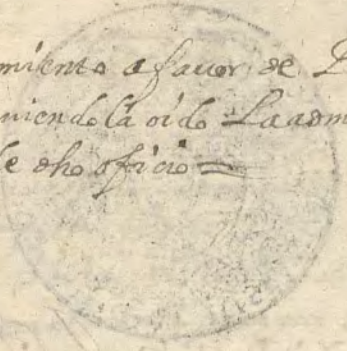 miento a favor de
niendola oido La adm
de dho oficio =